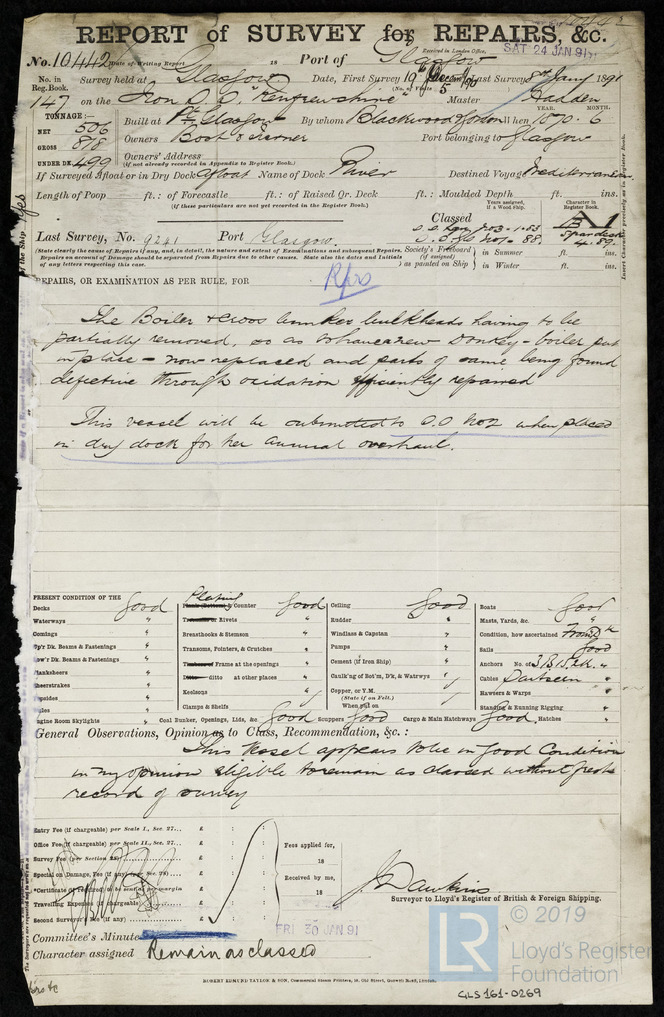 REPORT of SURVEY for REPAIRS, &c.
No. 10442 Date of Writing Report 18 Port of Glasgow
Received in London Office. SAT 24 JAN 91
No. in Reg. Book. Survey held at Glasgow Date, First Survey 19th Decem/90 Last Survey Jany 1891
(No. of Visits 5)
147 on the Iron S.S. "Renfrewshire" Master Hadden
TONNAGE:—
NET 506
GROSS 878
UNDER DK. 499
YEAR. MONTH.
Built at Pt. Glasgow By whom Blackwood & Gordon When 1870. 6
Owners Port belonging to Glasgow
Owners' Address
(if not already recorded in Appendix to Register Book.)
If Surveyed Afloat or in Dry Dock Afloat Name of Dock River Destined Voyage Mediterranean
Length of Poop ft.: of Forecastle ft.: of Raised Qr. Deck ft.: Moulded Depth ft. ins.
(if these particulars are not yet recorded in the Register Book.)
Years assigned, if a Wood Ship.
Character in Register Book.
Classed
A 1
Spar deck
4.89.
Last Survey, No. 9241 Port Glasgow
1.83
88
(State clearly the cause of Repairs if any, and, in detail, the nature and extent of Examinations and subsequent Repairs.
Repairs on account of Damage should be separated from Repairs due to other causes. State also the dates and Initials
of any letters respecting this case.
Society's Freeboard (if assigned) as painted on Ship
in Summer ft. ins.
in Winter ft. ins.
REPAIRS, OR EXAMINATION AS PER RULE, FOR
Rprs
The Boiler & cross bunker bulkheads having to be
partially removed, so as to have a new Donkey-boiler put
in place – now replaced and parts of same being found
defective through oxidation efficiently repaired
This vessel will be submitted to S.S No2 when placed
in dry dock for her annual overhaul.
PRESENT CONDITION OF THE
Decks Good
Waterways "
Comings "
Up'r Dk. Beams & Fastenings "
Low'r Dk. Beams & Fastenings "
Planksheers "
Sheerstrakes "
Topsides "
Engine Room Skylights "
Plating & Counter Good
Rivets "
Breasthooks & Stemson "
Transoms, Pointers, & Crutches "
Frame at the openings "
ditto at other places "
Keelsons "
Clamps & Shelfs
Coal Bunker, Openings, Lids, &c. Good
Ceiling Good
Rudder "
Windlass & Capstan "
Pumps "
Cement (if Iron Ship) "
Caulk'ng of Bot'm, D'k, & Watrwys "
Copper, or Y.M.
(State if on Felt.)
When put on
Scuppers Good Cargo & Main Hatchways Good Hatches "
Boats Good
Masts, Yards, &c. "
Condition, how ascertained From Dk
Sails Good
Anchors No. of 3.B.1S.2K. "
Cables Part seen "
Hawsers & Warps "
Standing & Running Rigging "
General Observations, Opinion as to Class, Recommendation, &c.:
This Vessel appears to be in Good Condition
in my opinion eligible to remain as classed without fresh
record of survey
Entry Fee (if chargeable) per Scale I., Sec. 27... £ : :
Office Fee (if chargeable) per Scale II., Sec. 27... £ : :
Survey Fee (per Section 28) £ : :
Special on Damage, Fee (if any) (per Sec. 28) £ : :
*Certificate (if required) to be sent as per margin £ : :
Travelling Expenses (if chargeable) £ : :
Second Surveyor's Fee (if any) £ : :
Fees applied for, 18
Received by me, 18
J. Dawkins
Surveyor to Lloyd's Register of British & Foreign Shipping.
Committee's Minute FRI 30 JAN 91
Character assigned Remain as classed
ROBERT EDMUND TAYLOR & SON, Commercial Steam Printers, 19, Old Street, Goswell Road, London.
GLS 161-0269
LR
© 2019
Lloyd's Register
Foundation